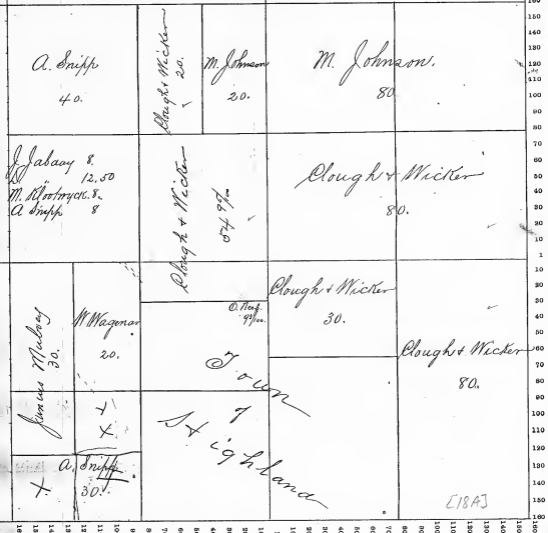 A. Snipp
40.
Clough & Wicker
20.
M. Johnson
20.
M. Johnson.
80
J. Jabaay 8.
D " 12.50
M. Klootwyck. 8.
A Snipp 8
Clough & Wicker
54 97/100
Clough & Wicker
80.
Junius Mulvey
30.
W Wagenar
20.
93/100
Clough & Wicker
30.
Clough & Wicker
80.
Town
of
Highland
X
X
A. Snipp
30.
X
[18A]
150
140
130
120
110
100
90
80
70
60
50
40
30
20
10
1
10
20
30
40
50
60
70
80
90
100
110
120
130
140
150
160